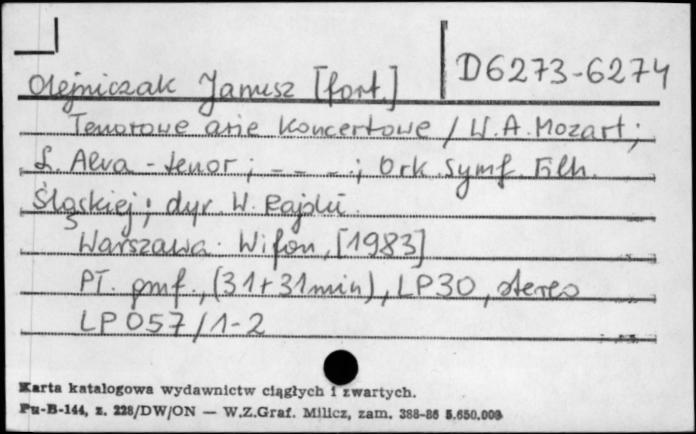 D6273-6274
Olejniczak Janusz [fort.]
Tenorowe arie koncertowe / W. A. Mozart;
L. Alva - tenor; - - -.; Ork. Symf. Filh.
Śląskiej; dyr. W. Rajski
Warszawa: Wifon, [1983]
PŁ. gmf., (31+31min), LP30, stereo
LP 057/1-2
Karta katalogowa wydawnictw ciągłych i zwartych.
Pu-B-144, z. 228/DW/ON — W.Z.Graf. Milicz, zam. 388-86 5.650.000